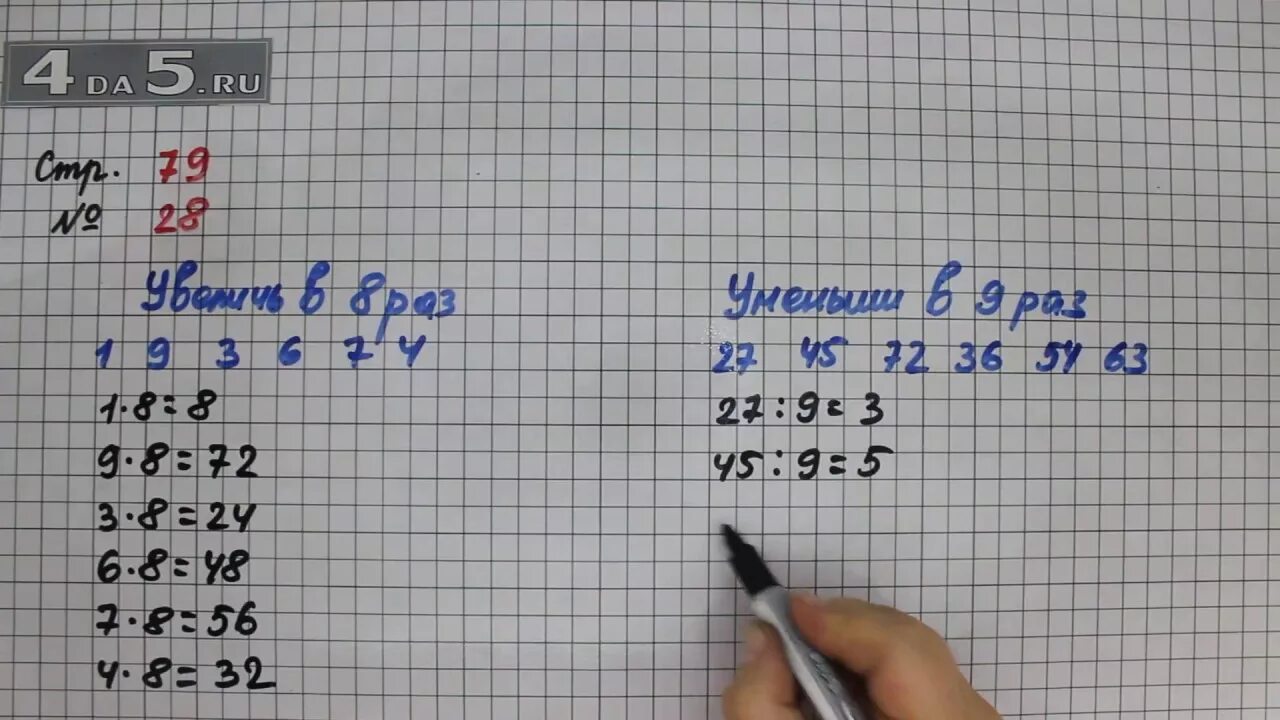 4 DA 5.RU
Стр. 79
№ 28
Увеличь в 8 раз
1 9 3 6 7 4
1·8=8
9·8=72
3·8=24
6·8=48
7·8=56
4·8=32
Уменьши в 9 раз
27 45 72 36 54 63
27:9=3
45:9=5